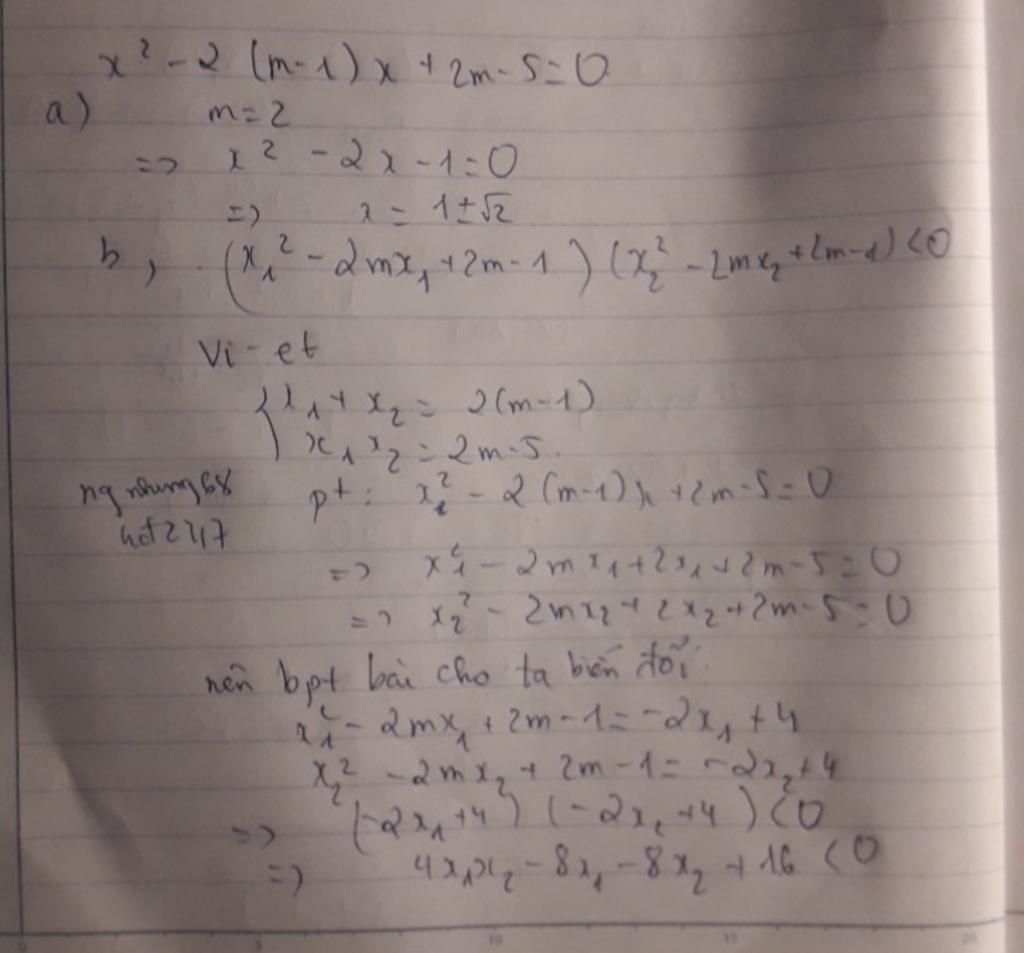 x² - 2 (m-1) x + 2m - 5 = 0
a) m = 2
=> x² - 2x - 1 = 0
=> x = 1 ± √2
b, (x₁² - 2mx₁ + 2m - 1) (x₂² - 2mx₂ + 2m - 1) < 0
Vi-et
{ x₁ + x₂ = 2(m-1)
x₁ x₂ = 2m - 5.
pt: x₁² - 2 (m-1) x + 2m - 5 = 0
=> x₁² - 2mx₁ + 2x₁ + 2m - 5 = 0
=> x₂² - 2mx₂ + 2x₂ + 2m - 5 = 0
nên bpt bài cho ta biến đổi:
x₁² - 2mx₁ + 2m - 1 = -2x₁ + 4
x₂² - 2mx₂ + 2m - 1 = -2x₂ + 4
=> (-2x₁ + 4) (-2x₂ + 4) < 0
=> 4x₁x₂ - 8x₁ - 8x₂ + 16 < 0
5 10 15 20